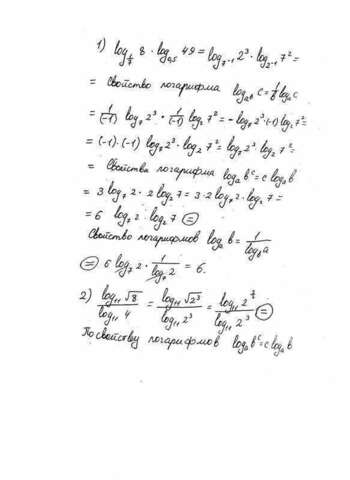 1) log_{1/7} 8 · log_{0,5} 49 = log_{7^{-1}} 2^3 · log_{2^{-1}} 7^2 =
= Свойство логарифма log_{a^b} c = 1/b log_a c
= 1/(-1) log_7 2^3 · 1/(-1) log_2 7^2 = -log_7 2^3 · (-1) log_2 7^2 =
= (-1) · (-1) log_7 2^3 · log_2 7^2 = log_7 2^3 · log_2 7^2 =
= Свойства логарифма log_a b^c = c log_a b
= 3 log_7 2 · 2 log_2 7 = 3 · 2 log_7 2 · log_2 7 =
= 6 log_7 2 · log_2 7 =
Свойство логарифмов log_a b = 1/log_b a
= 6 log_7 2 · 1/log_7 2 = 6.
2) log_{11} √8 / log_{11} 4 = log_{11} √2^3 / log_{11} 2^3 = / log_{11} 2^3 =
По свойству логарифмов log_a b^c = c log_a b